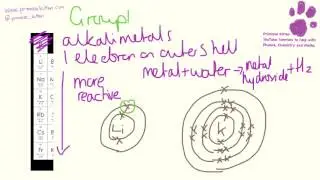 www.primrosekitten.com
@primrose_kitten
Group 1
alkali metals
1 electron on outer shell
metal + water → metal hydroxide + H₂
more reactive
Primrose Kitten
YouTube tutorials to help with
Physics, Chemistry and Maths
Li
Na
K
Rb
Cs
Fr
Li
K